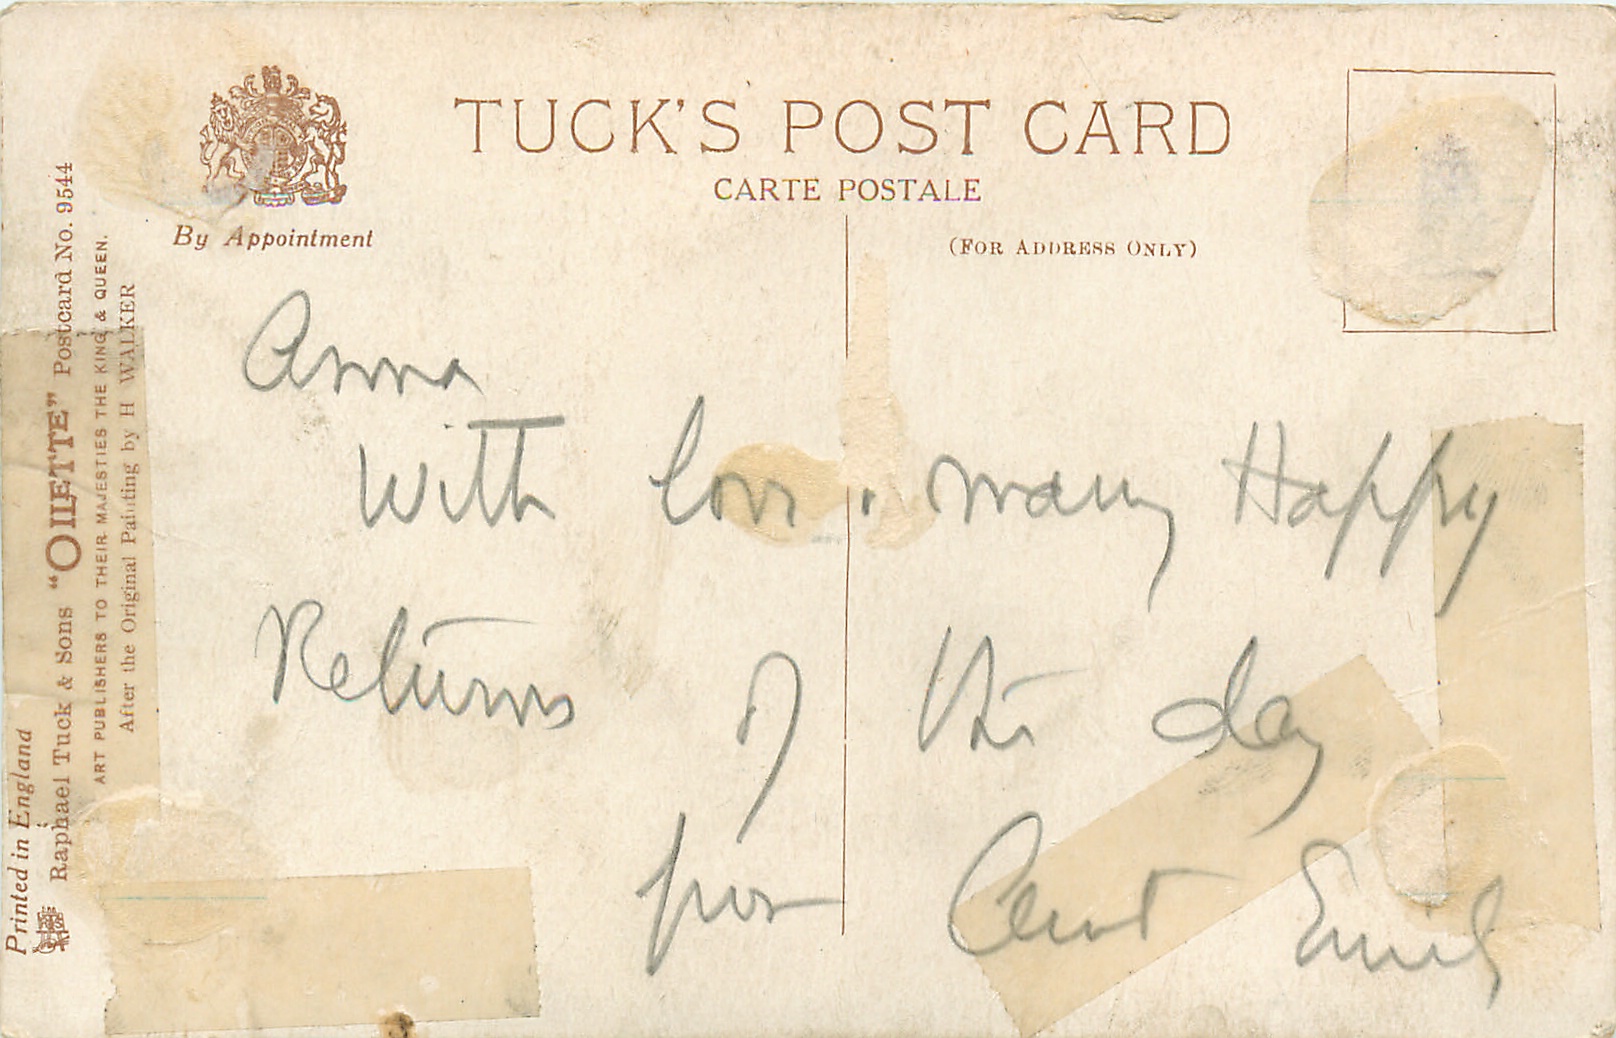 TUCK'S POST CARD
CARTE POSTALE
By Appointment
(FOR ADDRESS ONLY)
Anna
With love & many Happy
Returns of the day
from Aunt Emily
Printed in England
Raphael Tuck & Sons "OILETTE" Postcard No. 9544
ART PUBLISHERS TO THEIR MAJESTIES THE KING & QUEEN.
After the Original Painting by H WALKER